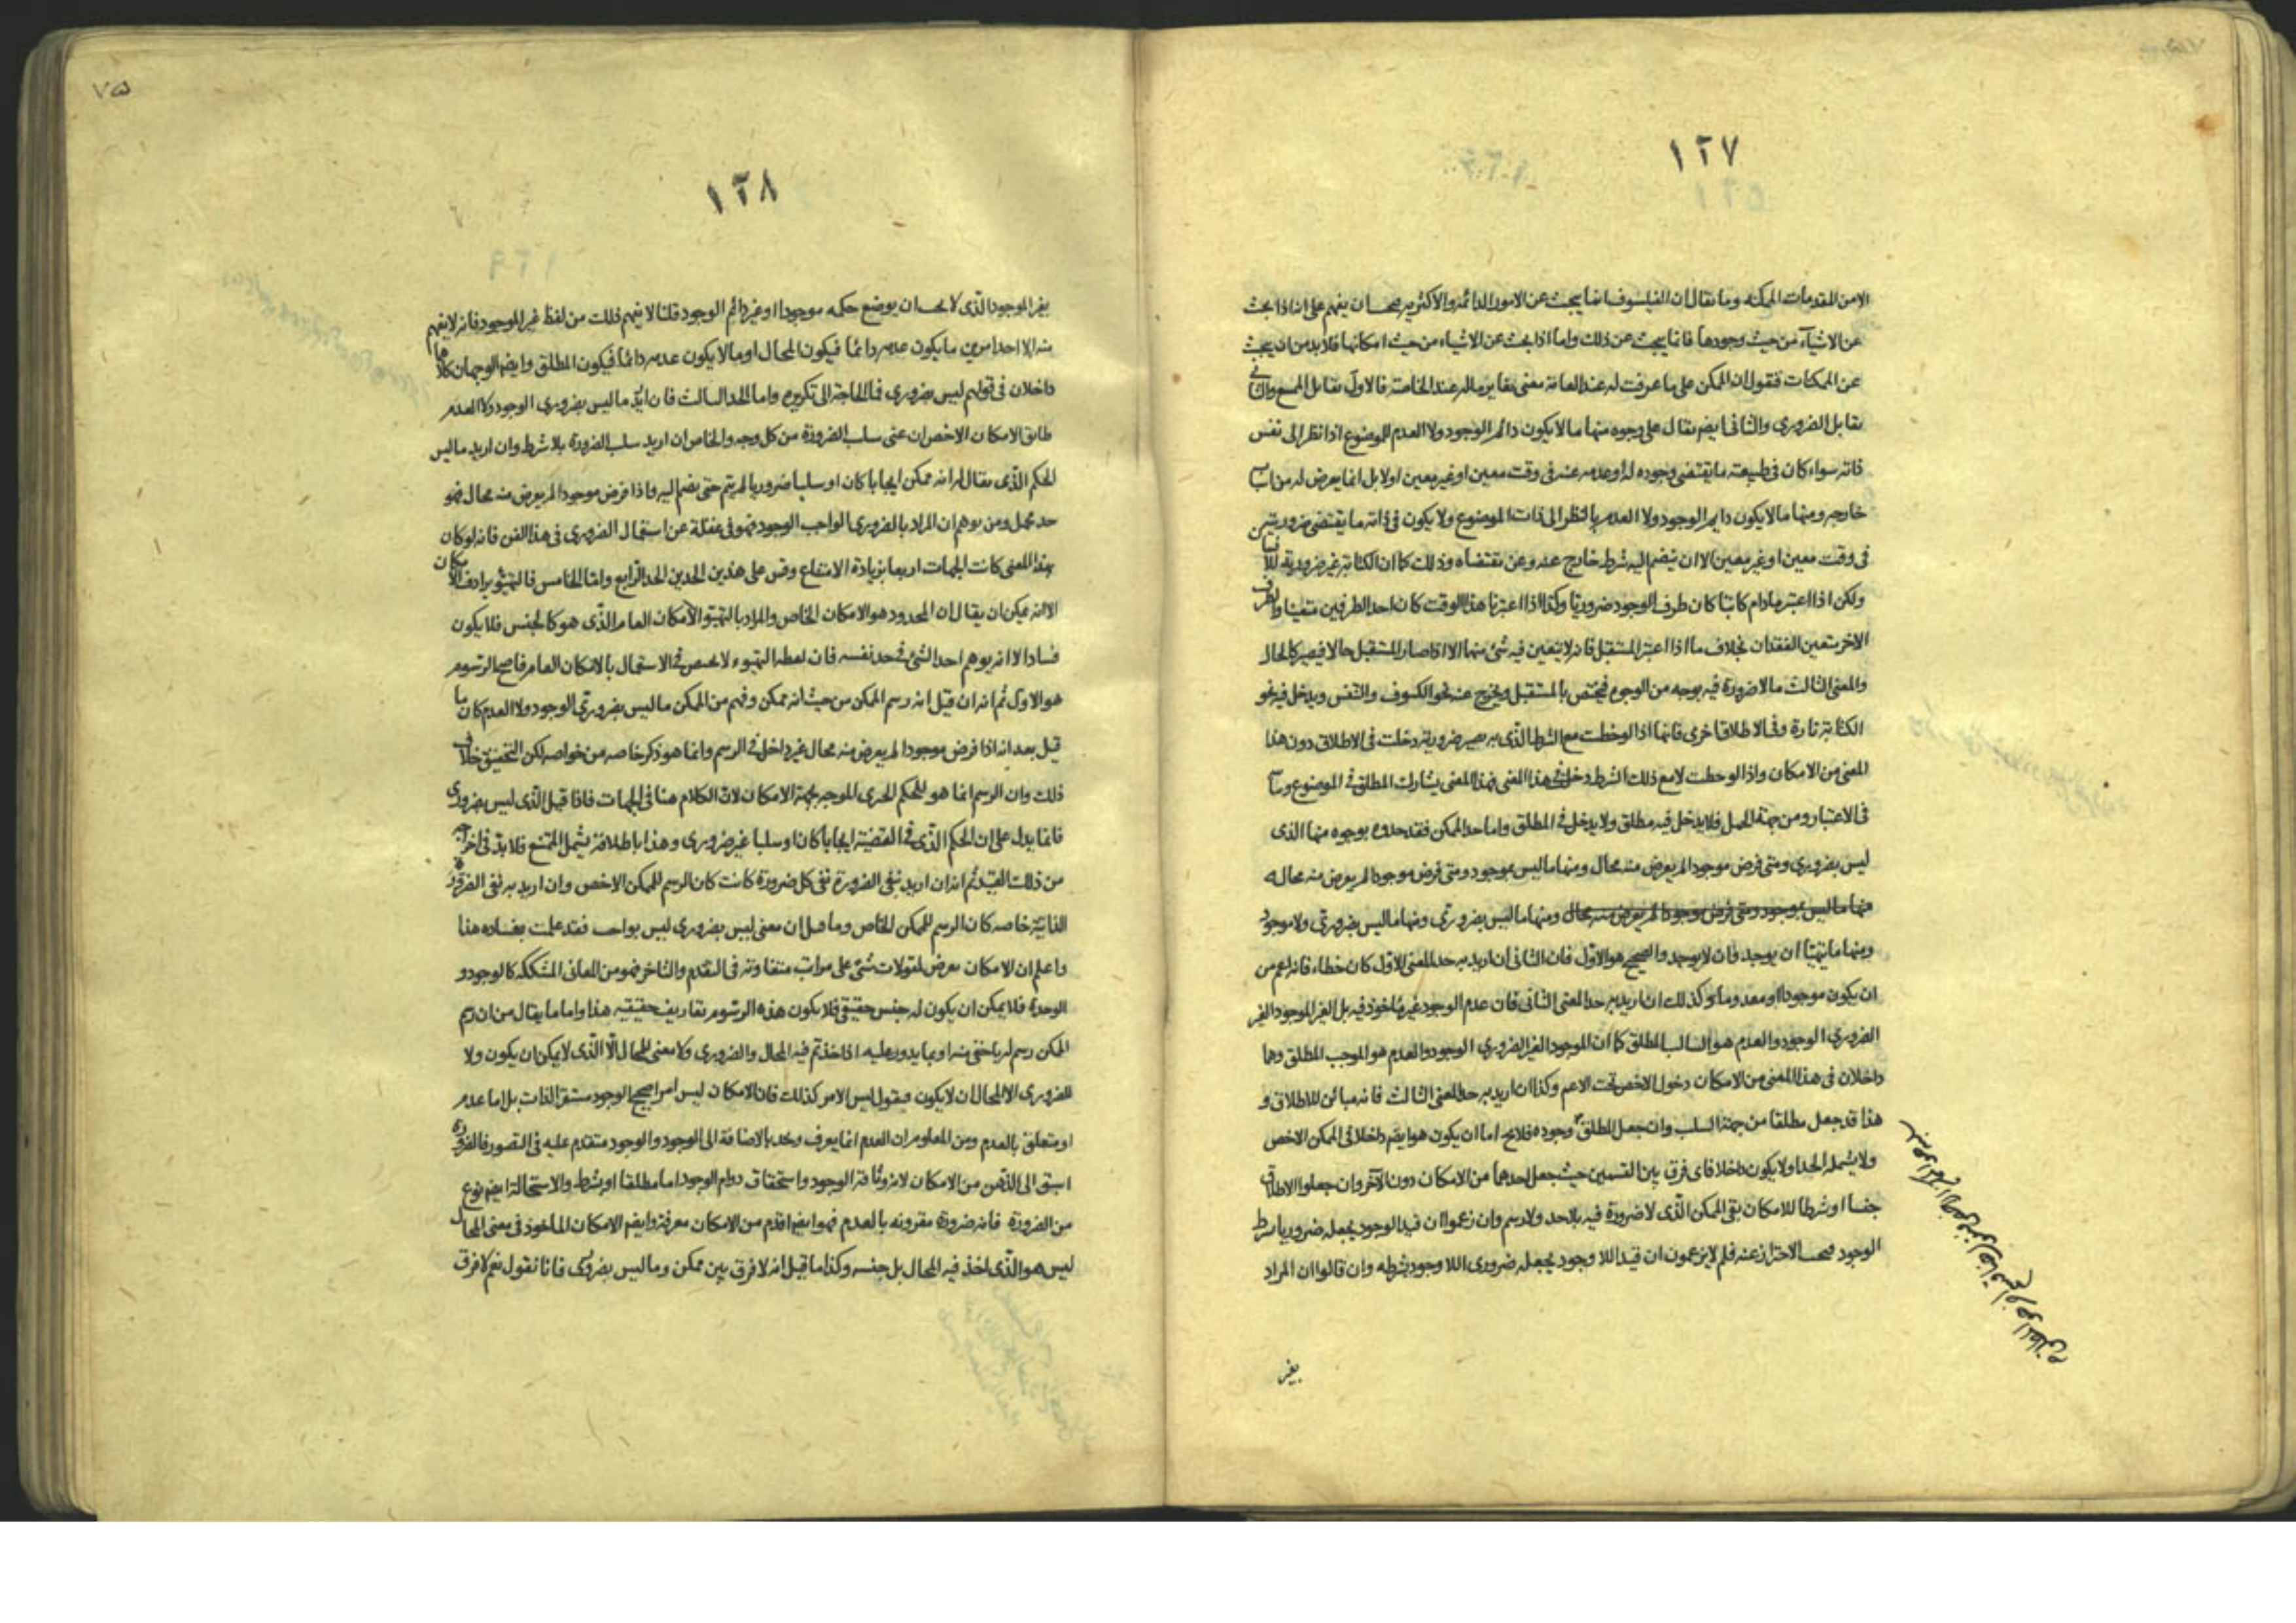 ١٢٧
الا من المقدمات الممكنه وما يقال ان الفيلسوف انما يبحث عن الامور الدائمة والاكثريه فيجب ان يفهم على انه اذا بحث
عن الاشياء من حيث وجودها فانما يبحث عن ذلك واما اذا بحث عن الاشياء من حيث امكانها فلا بد من ان يبحث
عن الممكنات فنقول ان الممكن على ما عرفت له عند العامة معنى يغاير ماله عند الخاصة فالاول يقابل الممتنع والثانى
يقابل الضرورى والثانى ايضم يقال على وجوه منها ما لا يكون دائم الوجود ولا العدم للموضوع اذا نظر الى نفس
ذاته سواء كان فى طبيعته ما يقتضى وجوده له او عدمه عنه فى وقت معين او غير معين اولا بل انما يعرض له من اسباب
خارجه ومنها ما لا يكون دايم الوجود ولا العدم بالنظر الى ذات الموضوع ولا يكون فى ذاته ما يقتضى ضرورتين
فى وقت معين او غير معين الا ان ينضم اليه شرط خارج عنه وعن مقتضاه وذلك كما ان الكتابة غير ضرورية للانسان
ولكن اذا اعتبر مادام كاتبا كان طرف الوجود ضروريا وكذا اذا اعتبرنا هذا الوقت كان احد الطرفين متعينا والطرف
الاخر متعين الفقدان بخلاف ما اذا اعتبر المستقبل فانه لا يتعين فيه شئ منهما الا اذا صار المستقبل حالا فيصير كالحال
والمعنى الثالث ما لا ضرورة فيه بوجه من الوجوه فيختص بالمستقبل ويخرج عنه نحو الكسوف والتنفس ويدخل فيه نحو
الكتابة تارة وفى الاطلاق اخرى فانها اذا لوحظت مع الشرط الذى به يصير ضروريا دخلت فى الاطلاق دون هذا
المعنى من الامكان واذا لوحظت لا مع ذلك الشرط دخلت فى هذا المعنى فهذا المعنى يشارك المطلق فى الموضوع
فى الاعتبار ومن جهة الحمل فلا يدخل فيه مطلق ولا يدخل فى المطلق واما حد الممكن فقد حدوه بوجوه منها الذى
ليس بضرورى ومتى فرض موجودا لم يعرض منه محال ومنها ما ليس بموجود ومتى فرض موجودا لم يعرض منه محال
منها ما ليس بموجود ومتى فرض موجودا لم يعرض منه محال ومنها ما ليس بضرورى ومنها ما ليس بضرورى ولا موجود
ومنها ما يتهيأ ان يوجد فان لا يوجد والصحيح هو الاول فان الثانى ان اريد به حد المعنى الاول كان خطاء فانه اعم من
ان يكون موجودا او معدوما وكذلك ان اريد به حد المعنى الثانى فان عدم الوجود غير ماخوذ فيه بل الغير الموجود الغير
الضرورى الوجود والعدم هو السالب المطلق كما ان الموجود الغير الضرورى الوجود والعدم هو الموجب المطلق وهما
داخلان فى هذا المعنى من الامكان دخول الاخص تحت الاعم وكذا ان اريد به حد المعنى الثالث فانه مباين للاطلاق و
هذا قد جعل مطلقا من جهة السلب وان جعل المطلق وجوده فلا يخ اما ان يكون هو ايضم داخلا فى الممكن الاخص
ولا يشمله الحد اولا يكون داخلا فاى فرق بين القسمين حيث جعل احدهما من الامكان دون الآخر وان جعلوا الاطلاق
جنسا او شرطا للامكان بقى الممكن الذى لا ضرورة فيه بلا حد ولا رسم وان زعموا ان قيد الوجود يجعله ضروريا بشرط
الوجود فيجب الاحتراز عنه فلم لا يزعمون ان قيد اللا وجود يجعله ضرورى اللا وجود بشرطه وان قالوا ان المراد
بغير
١٢٨
بغير الموجود الذى لا يجب ان يوضع حكمه موجودا او غير دائم الوجود قلنا لا يفهم ذلك من لفظ غير الموجود فانه لا يفهم
منه الا احد امرين ما يكون عدمه دائما فيكون المحال او ما لا يكون عدمه دائما فيكون المطلق وايضم الوجهان كلاهما
داخلان فى قولهم ليس بضرورى فما الحاجة الى تكريره واما الحد الثالث فان اريد ما ليس بضرورى الوجود ولا العدم
طابق الامكان الاخص ان عنى سلب الضرورة من كل وجه والخاص ان اريد سلب الضرورة بلا شرط وان اريد ما ليس
الحكم الذى يقال له انه ممكن ايجابا كان او سلبا ضروريا لم يتم حتى يضم اليه واذا فرض موجودا لم يعرض منه محال فهو
حد مجمل ومن يوهم ان المراد بالضرورى الواجب الوجود فهو فى غفلة عن استعمال الضرورى فى هذا الفن فانه لو كان
بهذا المعنى كانت الجهات اربعا بزيادة الامتناع وقس على هذين الحدين الحد الرابع واما الخامس فالتهيؤ يرادف الامكان
الا انه يمكن ان يقال ان المحدود هو الامكان الخاص والمراد بالتهيؤ الامكان العام الذى هو كالجنس فلا يكون
فسادا الا انه يوهم احد الشئ فى حد نفسه فان لفظه التهيوء لا يختص فى الاستعمال بالامكان العام فاصح الرسوم
هو الاول ثم انه ان قيل انه رسم الممكن من حيث انه ممكن وفهم من الممكن ما ليس بضرورى الوجود ولا العدم كان ما
قيل بعد انه اذا فرض موجودا لم يعرض منه محال غير داخل فى الرسم وانما هو ذكر خاصه من خواصه لكن التحقيق خلاف
ذلك وان الرسم انما هو للحكم الموجه بجهة الامكان لان الكلام هنا فى الجهات فاذا قيل الذى ليس بضرورى
فانما يدل على ان الحكم الذى فى القضية ايجابا كان او سلبا غير ضرورى وهذا باطلاقه يشمل الممتنع فلا بد فى اخراجه
من ذلك القيد ثم انه ان اريد بنفى الضرورة نفى كل ضرورة كانت كان الرسم للممكن الاخص وان اريد به نفى الضرورة
الذاتية خاصه كان الرسم للممكن الخاص وما قيل ان معنى ليس بضرورى ليس بواجب فقد علمت بفساده هذا
واعلم ان الامكان يعرض لمقولات شئ على مراتب متفاوته فى التقدم والتاخر فهو من المعانى المشككه كالوجود و
الوحدة فلا يمكن ان يكون له جنس حقيقى فلا يكون هذه الرسوم تعاريف حقيقيه هذا واما ما يقال من ان رسم
الممكن رسم له باخفى منه او بما يدور عليه اذ اخذ ثم فيه المحال والضرورى ولا معنى للمحال الا الذى لا يمكن ان يكون ولا
للضرورى الا المحال ان لا يكون فيقول ليس الامر كذلك فان الامكان ليس امرا صحيح الوجود مستقر الذات بل اما عدم
او متعلق بالعدم ومن المعلوم ان العدم انما يعرف ويحد بالاضافة الى الوجود والوجود متقدم عليه فى التصور فالضرورة
اسبق الى الذهن من الامكان لانه وثاقة الوجود واستحقاق دوام الوجود اما مطلقا او بشرط والاستحالة ايضم نوع
من الضرورة فانه ضرورة مقرونه بالعدم فهو ايضم اقدم من الامكان معرفة وايضم الامكان الماخوذ فى معنى المحال
ليس هو الذى اخذ فيه المحال بل جنسه وكذا ما قيل انه لا فرق بين ممكن وما ليس بضرورى فانا نقول نعم لا فرق